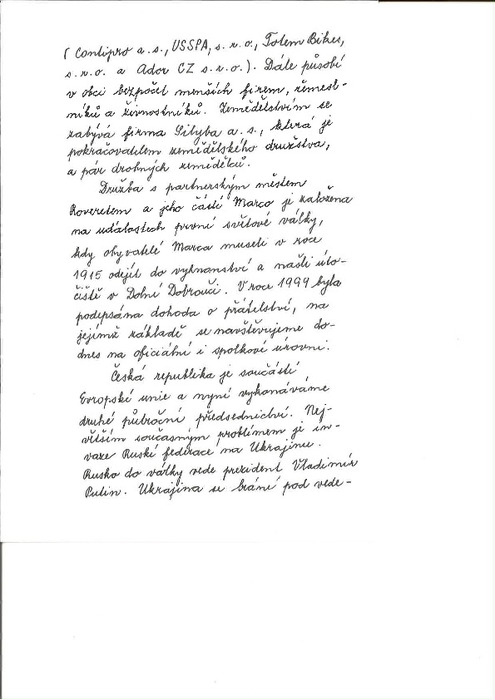 (Contipro a.s., USSPA, s.r.o., Totem Bikes,
s.r.o. a Ador CZ s.r.o.). Dále působí
v obci bezpočet menších firem, řemesl-
níků a živnostníků. Zemědělstvím se
zabývá firma Libyba a.s., která je
pokračovatelem zemědělského družstva,
a pár drobných zemědělců.
Družba s partnerským městem
Roveretem a jeho částí Marco je založena
na událostech první světové války,
kdy obyvatelé Marca museli v roce
1915 odejít do vyhnanství a našli úto-
čiště v Dolní Dobrouči. V roce 1994 byla
podepsána dohoda o přátelství, na
jejímž základě se navštěvujeme do-
dnes na oficiální i spolkové úrovni.
Česká republika je součástí
Evropské unie a nyní vykonáváme
druhé půlroční předsednictví. Nej-
větším současným problémem je in-
vaze Ruské federace na Ukrajinu.
Rusko do války vede prezident Vladimír
Putin. Ukrajina se brání pod vede-